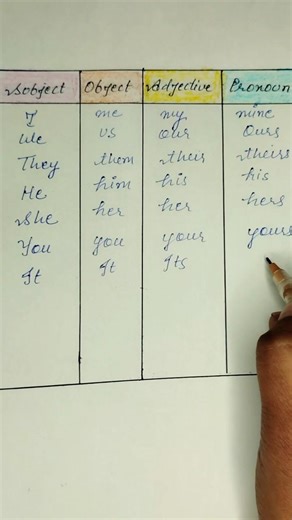 Subject Object Adjective Pronoun
I me my mine
We us our ours
They them their theirs
He him his his
She her her hers
You you your yours
It It Its